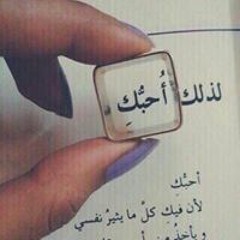 لذلك أُحبُّكِ
أحبُّكِ
لأن فيك كلَّ ما يثيرُ نفسي